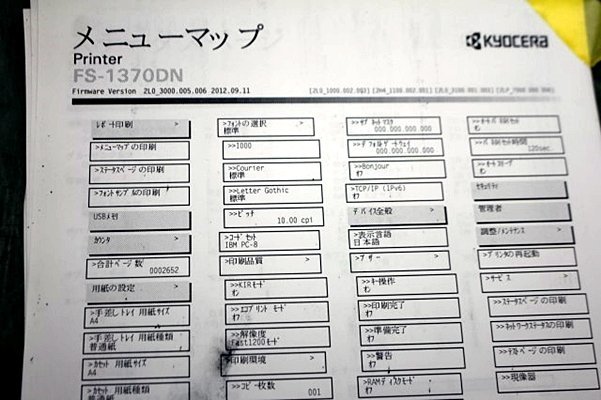 メニューマップ
KYOCERA
Printer
FS-1370DN
Firmware Version 2L0_3000.005.006 2012.09.11
レポート印刷 >
>メニューマップの印刷
>ステータスページの印刷
>フォントサンプルの印刷
USBメモリ >
カウンタ >
>合計ページ数
0002652
用紙の設定 >
>手差しトレイ 用紙サイズ
A4
>手差しトレイ 用紙種類
普通紙
>カセット 用紙サイズ
A4
>カセット 用紙種類
普通紙
>フォントの選択
標準
>>I000
>>Courier
標準
>>Letter Gothic
標準
>>ピッチ
10.00 cpi
>コードセット
IBM PC-8
>印刷品質 >
>>KIRモード
オン
>>エコプリント モード
オフ
>>解像度
Fast1200モード
>印刷環境 >
>>コピー枚数
001
>>サブネットマスク
000.000.000.000
>>デフォルトゲートウェイ
000.000.000.000
>>Bonjour
オフ
>TCP/IP (IPv6)
オフ
デバイス全般 >
>表示言語
日本語
>ブザー >
>>キー操作
オン
>>印刷完了
オフ
>>準備完了
オフ
>>警告
オフ
>RAMディスクモード
オフ
>>オートパネルリセット
オン
>>パネルリセット時間
120sec.
>>オートスリープ
オン
セキュリティ
管理者
調整/メンテナンス >
>プリンタの再起動
>サービス >
>>ステータスページの印刷
>>ネットワークステータスの印刷
>>テストページの印刷
>>現像器